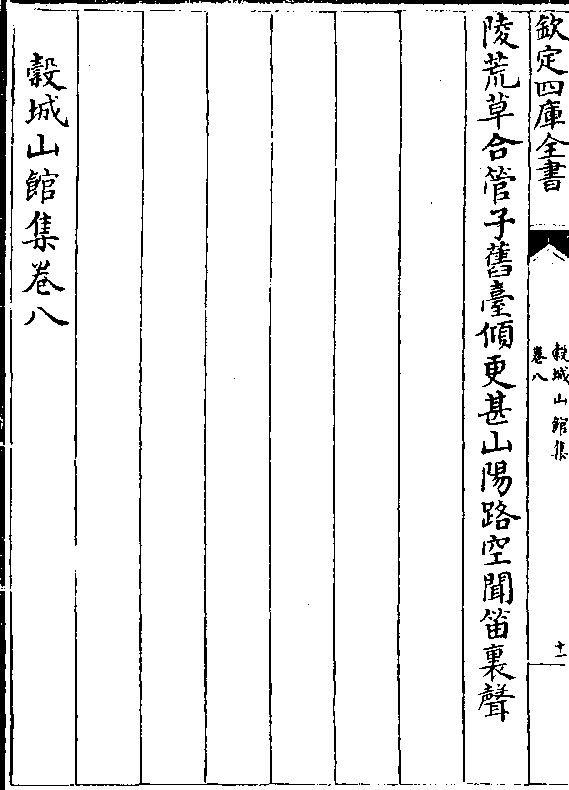 欽定四庫全書
榖城山館集
卷八
十一
陵荒草合管子舊臺傾更甚山陽路空聞笛裏聲
榖城山館集卷八